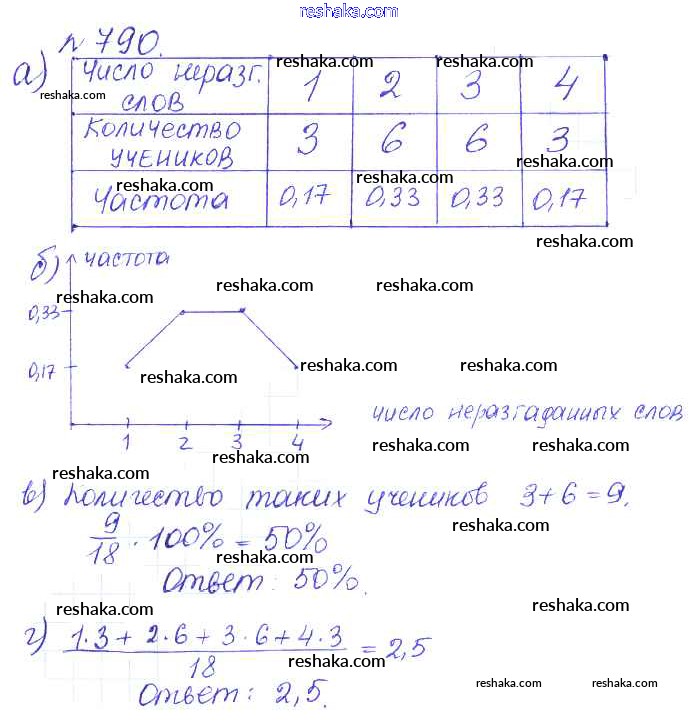 reshaka.com
№790.
reshaka.com
а) Число неразг. слов 1 2 3 4
reshaka.com
reshaka.com reshaka.com
Количество учеников 3 6 6 3
reshaka.com
reshaka.com reshaka.com
Частота 0,17 0,33 0,33 0,17
reshaka.com
б) частота
reshaka.com reshaka.com reshaka.com
0,33
reshaka.com
0,17
reshaka.com reshaka.com
число неразгаданных слов
1 2 3 4
reshaka.com reshaka.com
reshaka.com
reshaka.com
в) Количество таких учеников 3+6=9.
reshaka.com
9/18 · 100% = 50%
reshaka.com
Ответ: 50%.
reshaka.com reshaka.com
г) (1·3 + 2·6 + 3·6 + 4·3)/18 = 2,5
reshaka.com
reshaka.com reshaka.com
Ответ: 2,5.
reshaka.com